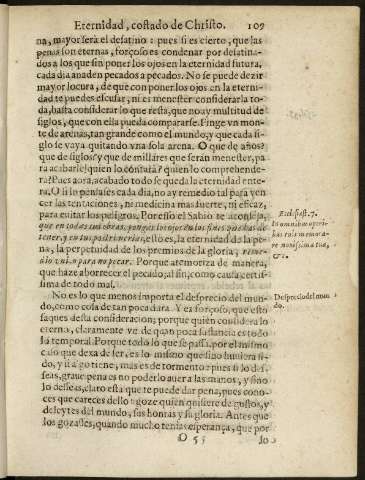 Eternidad, costado de Christo. 109
na, mayor será el desatino: pues si es cierto, que las
penas son eternas, forçoso es condenar por desatina-
dos a los que sin poner los ojos en la eternidad futura,
cada dia añaden pecados a pecados. No se puede dezir
mayor locura, de que con poner los ojos en la eterni-
dad te puedes escusar, ni es menester considerarla to-
da, basta considerar lo que resta, que no ay multitud de
siglos, que con ella pueda compararse. Finge vn mon-
te de arenas, tan grande como el mundo, y que cada si-
glo se vaya quitando vna sola arena. O que de años?
que de siglos? y que de millares que serán menester, pa
ra acabarle! quien lo contará? quien lo comprehende-
ra? Pues aora, acabado todo se queda la eternidad ente-
ra. O si lo pensases cada dia, no ay remedio tal para ven
cer las tentaciones, ni medicina mas fuerte, ni eficaz,
para euitar los peligros. Por esso el Sabio te aconseja,
que en todas tus obras, pongas los ojos en los fines que has de
tener, y en tus postrimerias, esto es, la eternidad de la pe-
na, la perpetuidad de los premios de la gloria, reme-
dio vnico para no pecar. Porque atemoriza de manera,
que haze aborrecer el pecado, al fin, como causa certis-
sima de todo mal.
No es lo que menos importa el desprecio del mun-
do, como cosa de tan poca dura. Y ea forçoso, que esto
saques desta consideracion; porque quien considera lo
eterno, claramente ve de quan poca sustancia es todo
lo temporal. Porque todo lo que se passa, por el mismo
caso que dexa de ser, es lo mismo que si no huuiera si-
do, y si a go tiene, mas es de tormento: pues si lo des-
seas, graue pena es no poderlo auer a las manos, y si no
lo desseas, claro está que te puede dar pena, pues cono-
ces que careces dello: goze quien quisiere de gustos, y
deleytes del mundo, sus honras y su gloria. Antes que
los gozasses, quando mucho tenias esperança, que por
O 5 lo
Eclesiast. 7.
In omnibus operi-
bus tuis memora-
re nouissima tua,
&c.
Desprecio del mun
do.